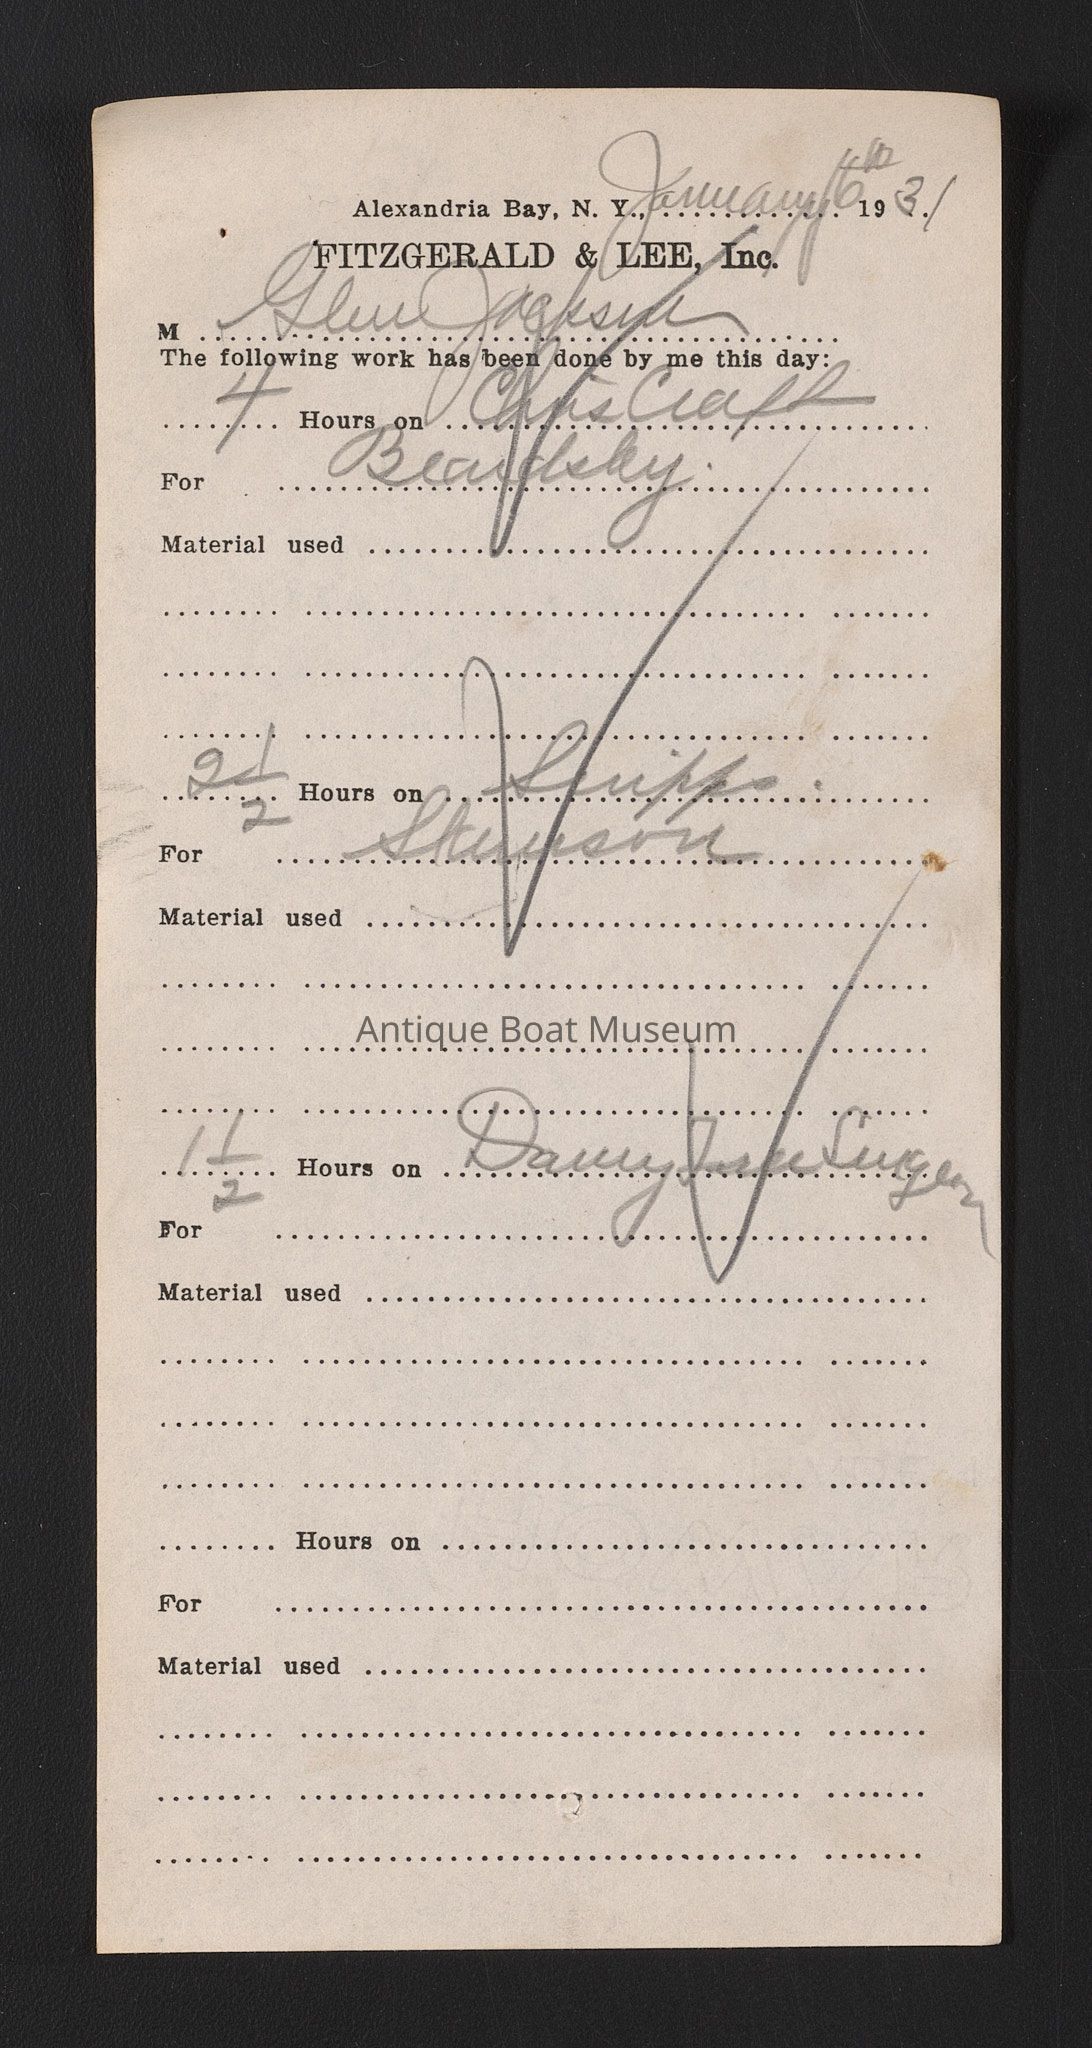 Alexandria Bay, N. Y., January 6th 1931
FITZGERALD & LEE, Inc.
M Glen Jackson
The following work has been done by me this day:
4 Hours on Chris Craft
For Beardsley.
Material used
2 1/2 Hours on Scripps.
For Stimson
Material used
Antique Boat Museum
1 1/2 Hours on Danny
For
Material used
Hours on
For
Material used